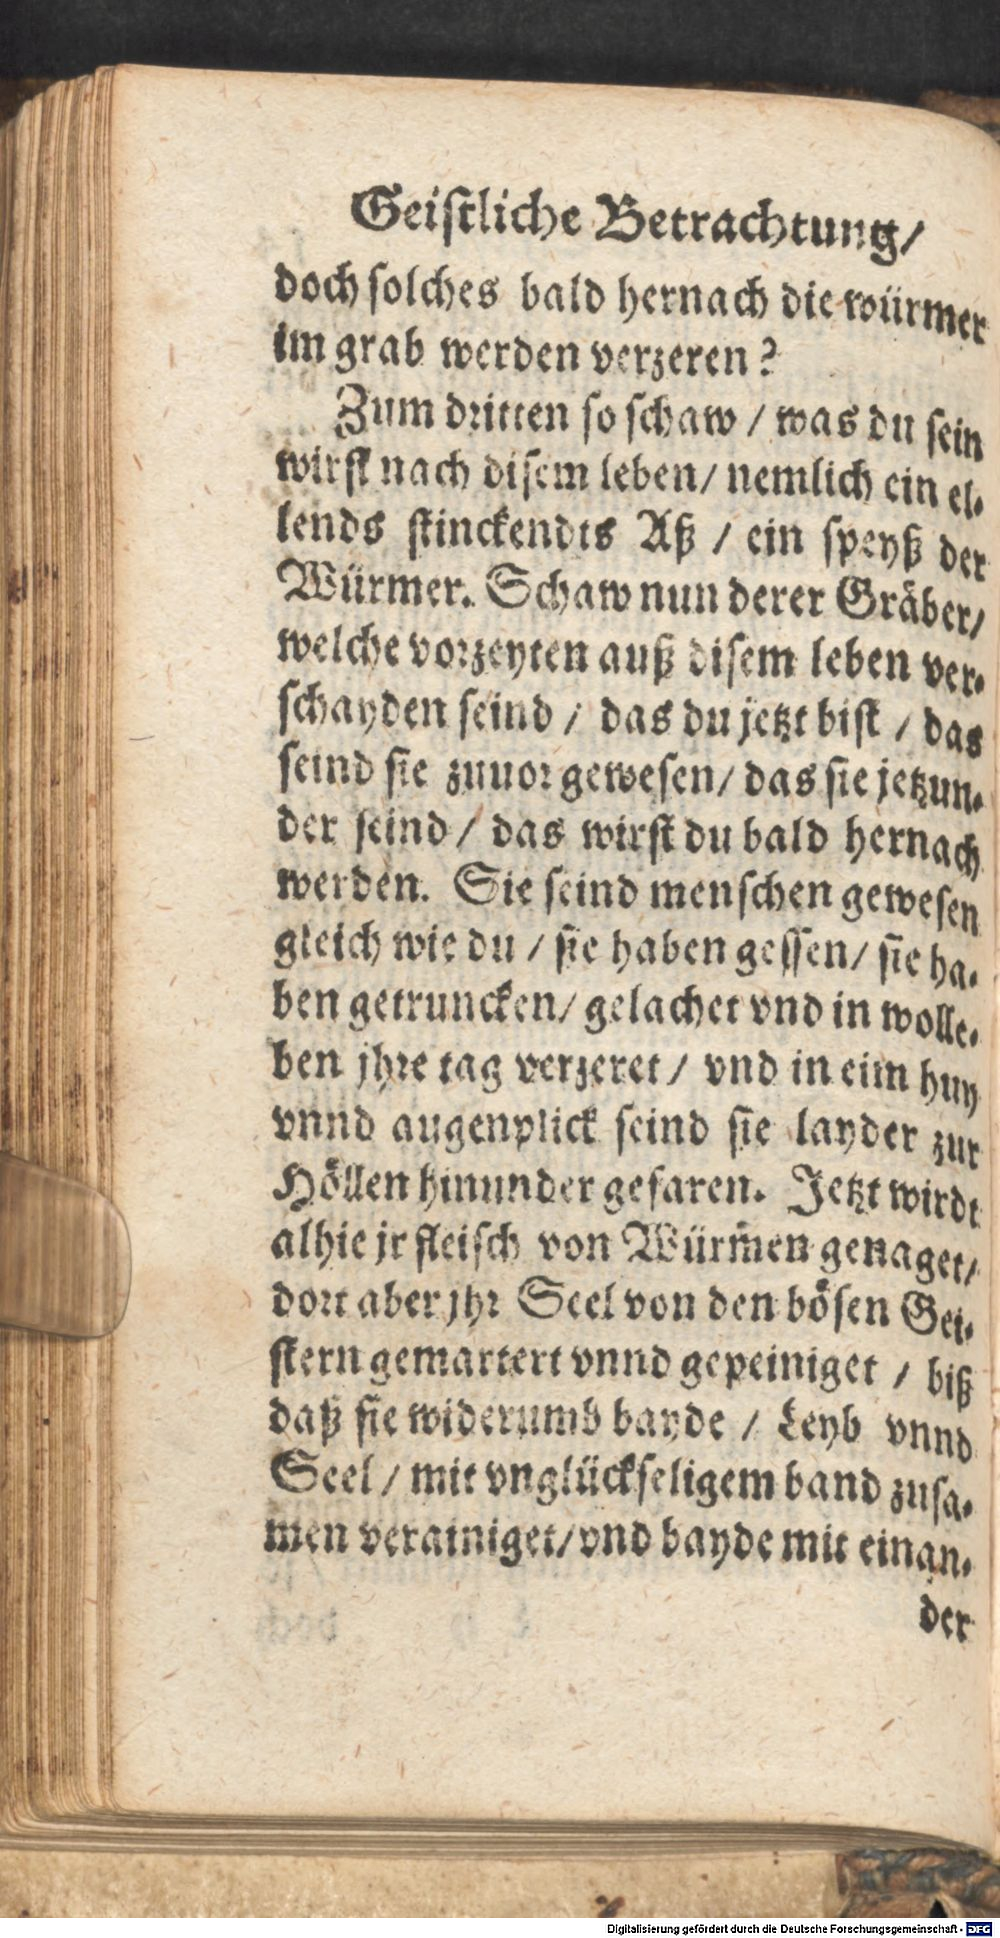 Geistliche Betrachtung/
doch solches bald hernach die würmer
im grab werden verzeren?
Zum dritten so schaw / was du sein
wirst nach disem leben/ nemlich ein el-
lends stinckendts Aß / ein speyß der
Würmer. Schaw nun derer Gräber/
welche vorzeyten auß disem leben ver-
schayden seind / das du jetzt bist / das
seind sie zuuor gewesen/ das sie jetzun-
der seind/ das wirst du bald hernach
werden. Sie seind menschen gewesen
gleich wie du / sie haben gessen/ sie ha-
ben getruncken/ gelachet vnd in wolle-
ben jhre tag verzeret/ vnd in eim huy
vnnd augenplick seind sie layder zur
Höllen hinunder gefaren. Jetzt wirdt
alhie jr fleisch von Würm̃en genaget/
dort aber jhr Seel von den bösen Gei-
stern gemartert vnnd gepeiniget / biß
daß sie widerumb bayde / Leyb vnnd
Seel/ mit vnglückseligem band zusa-
men verainiget/vnd bayde mit einan-
der
Digitalisierung gefördert durch die Deutsche Forschungsgemeinschaft - DFG